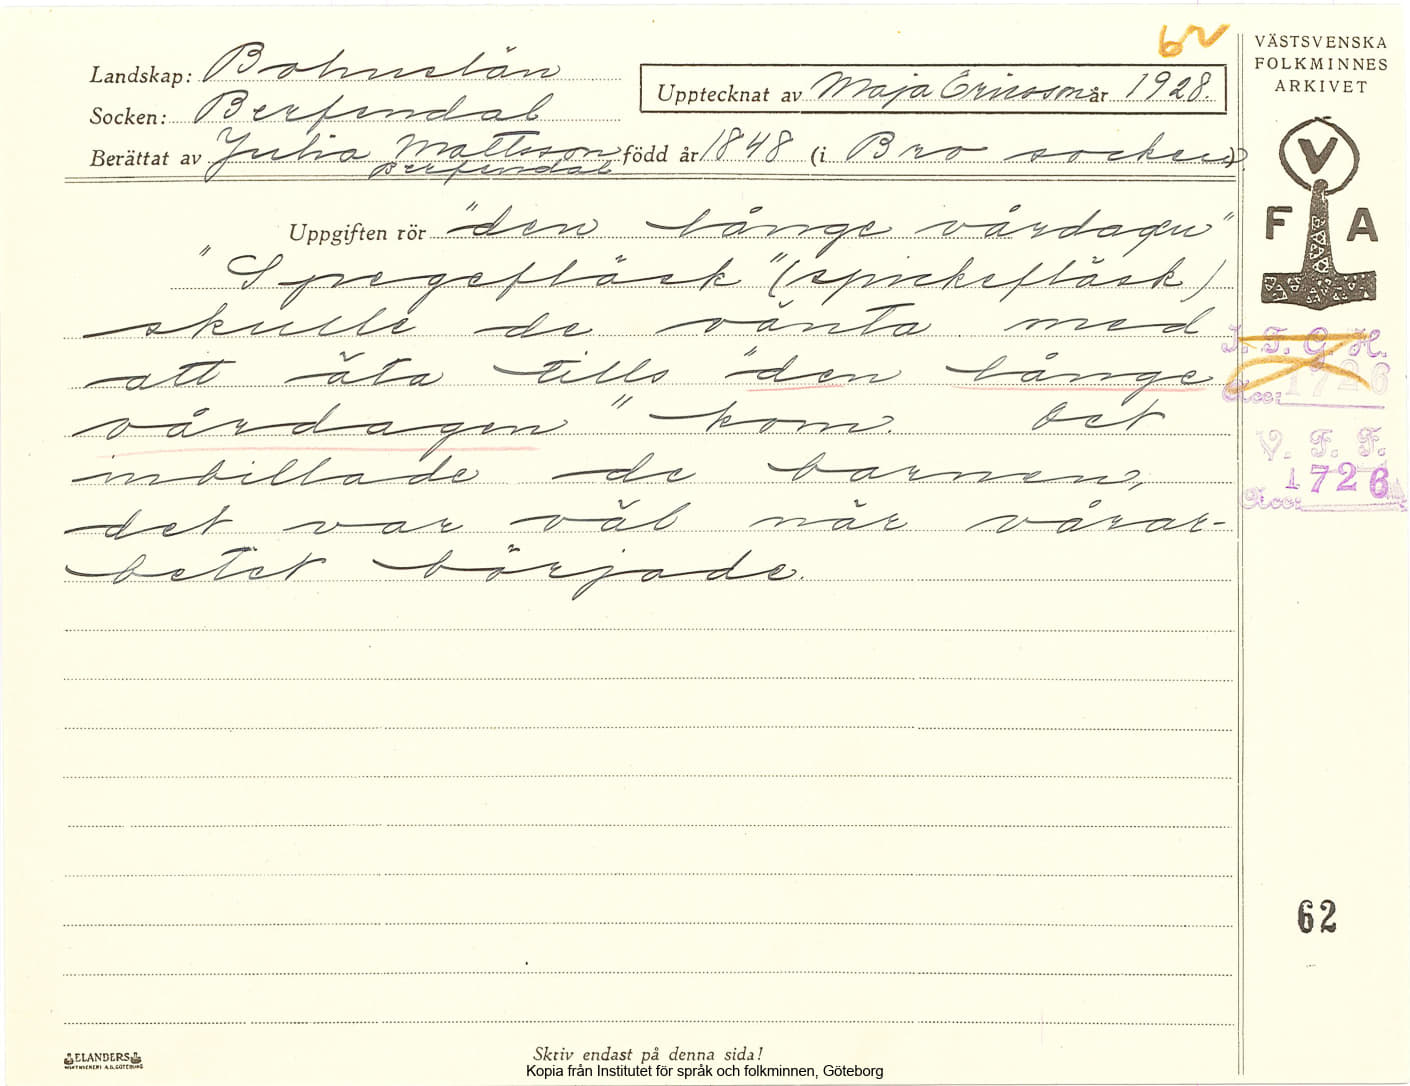 62
VÄSTSVENSKA
FOLKMINNES
ARKIVET
Landskap: Bohuslän
Upptecknat av Maja Ericsson år 1928.
Socken: Berfendal
Berättat av Julia Mattsson född år 1848 (i Bro socken)
Berfendal
V
F A
Uppgiften rör "den långe vårdagen"
"Spegefläsk" (spickefläsk)
skulle de vänta med
att äta tills "den långe
vårdagen" kom. Det
inbillade de barnen,
det var väl när vårar-
betet började.
I. F. G. H.
Acc: 1726
V. F. F.
1726
Acc:
62
ELANDERS
Skriv endast på denna sida!
Kopia från Institutet för språk och folkminnen, Göteborg